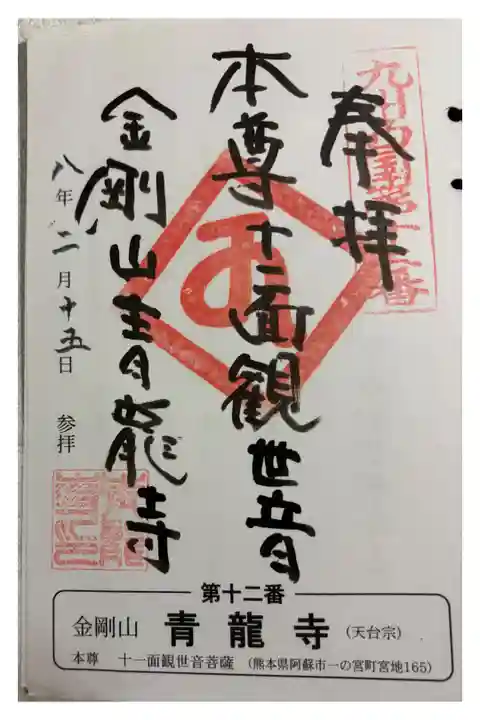 奉拝
九州西国第十二番
本尊十一面観世音
金剛山青龍寺
八年 二月 十五日 参拝
第十二番
金剛山 青龍寺 (天台宗)
本尊 十一面観世音菩薩 (熊本県阿蘇市一の宮町宮地165)